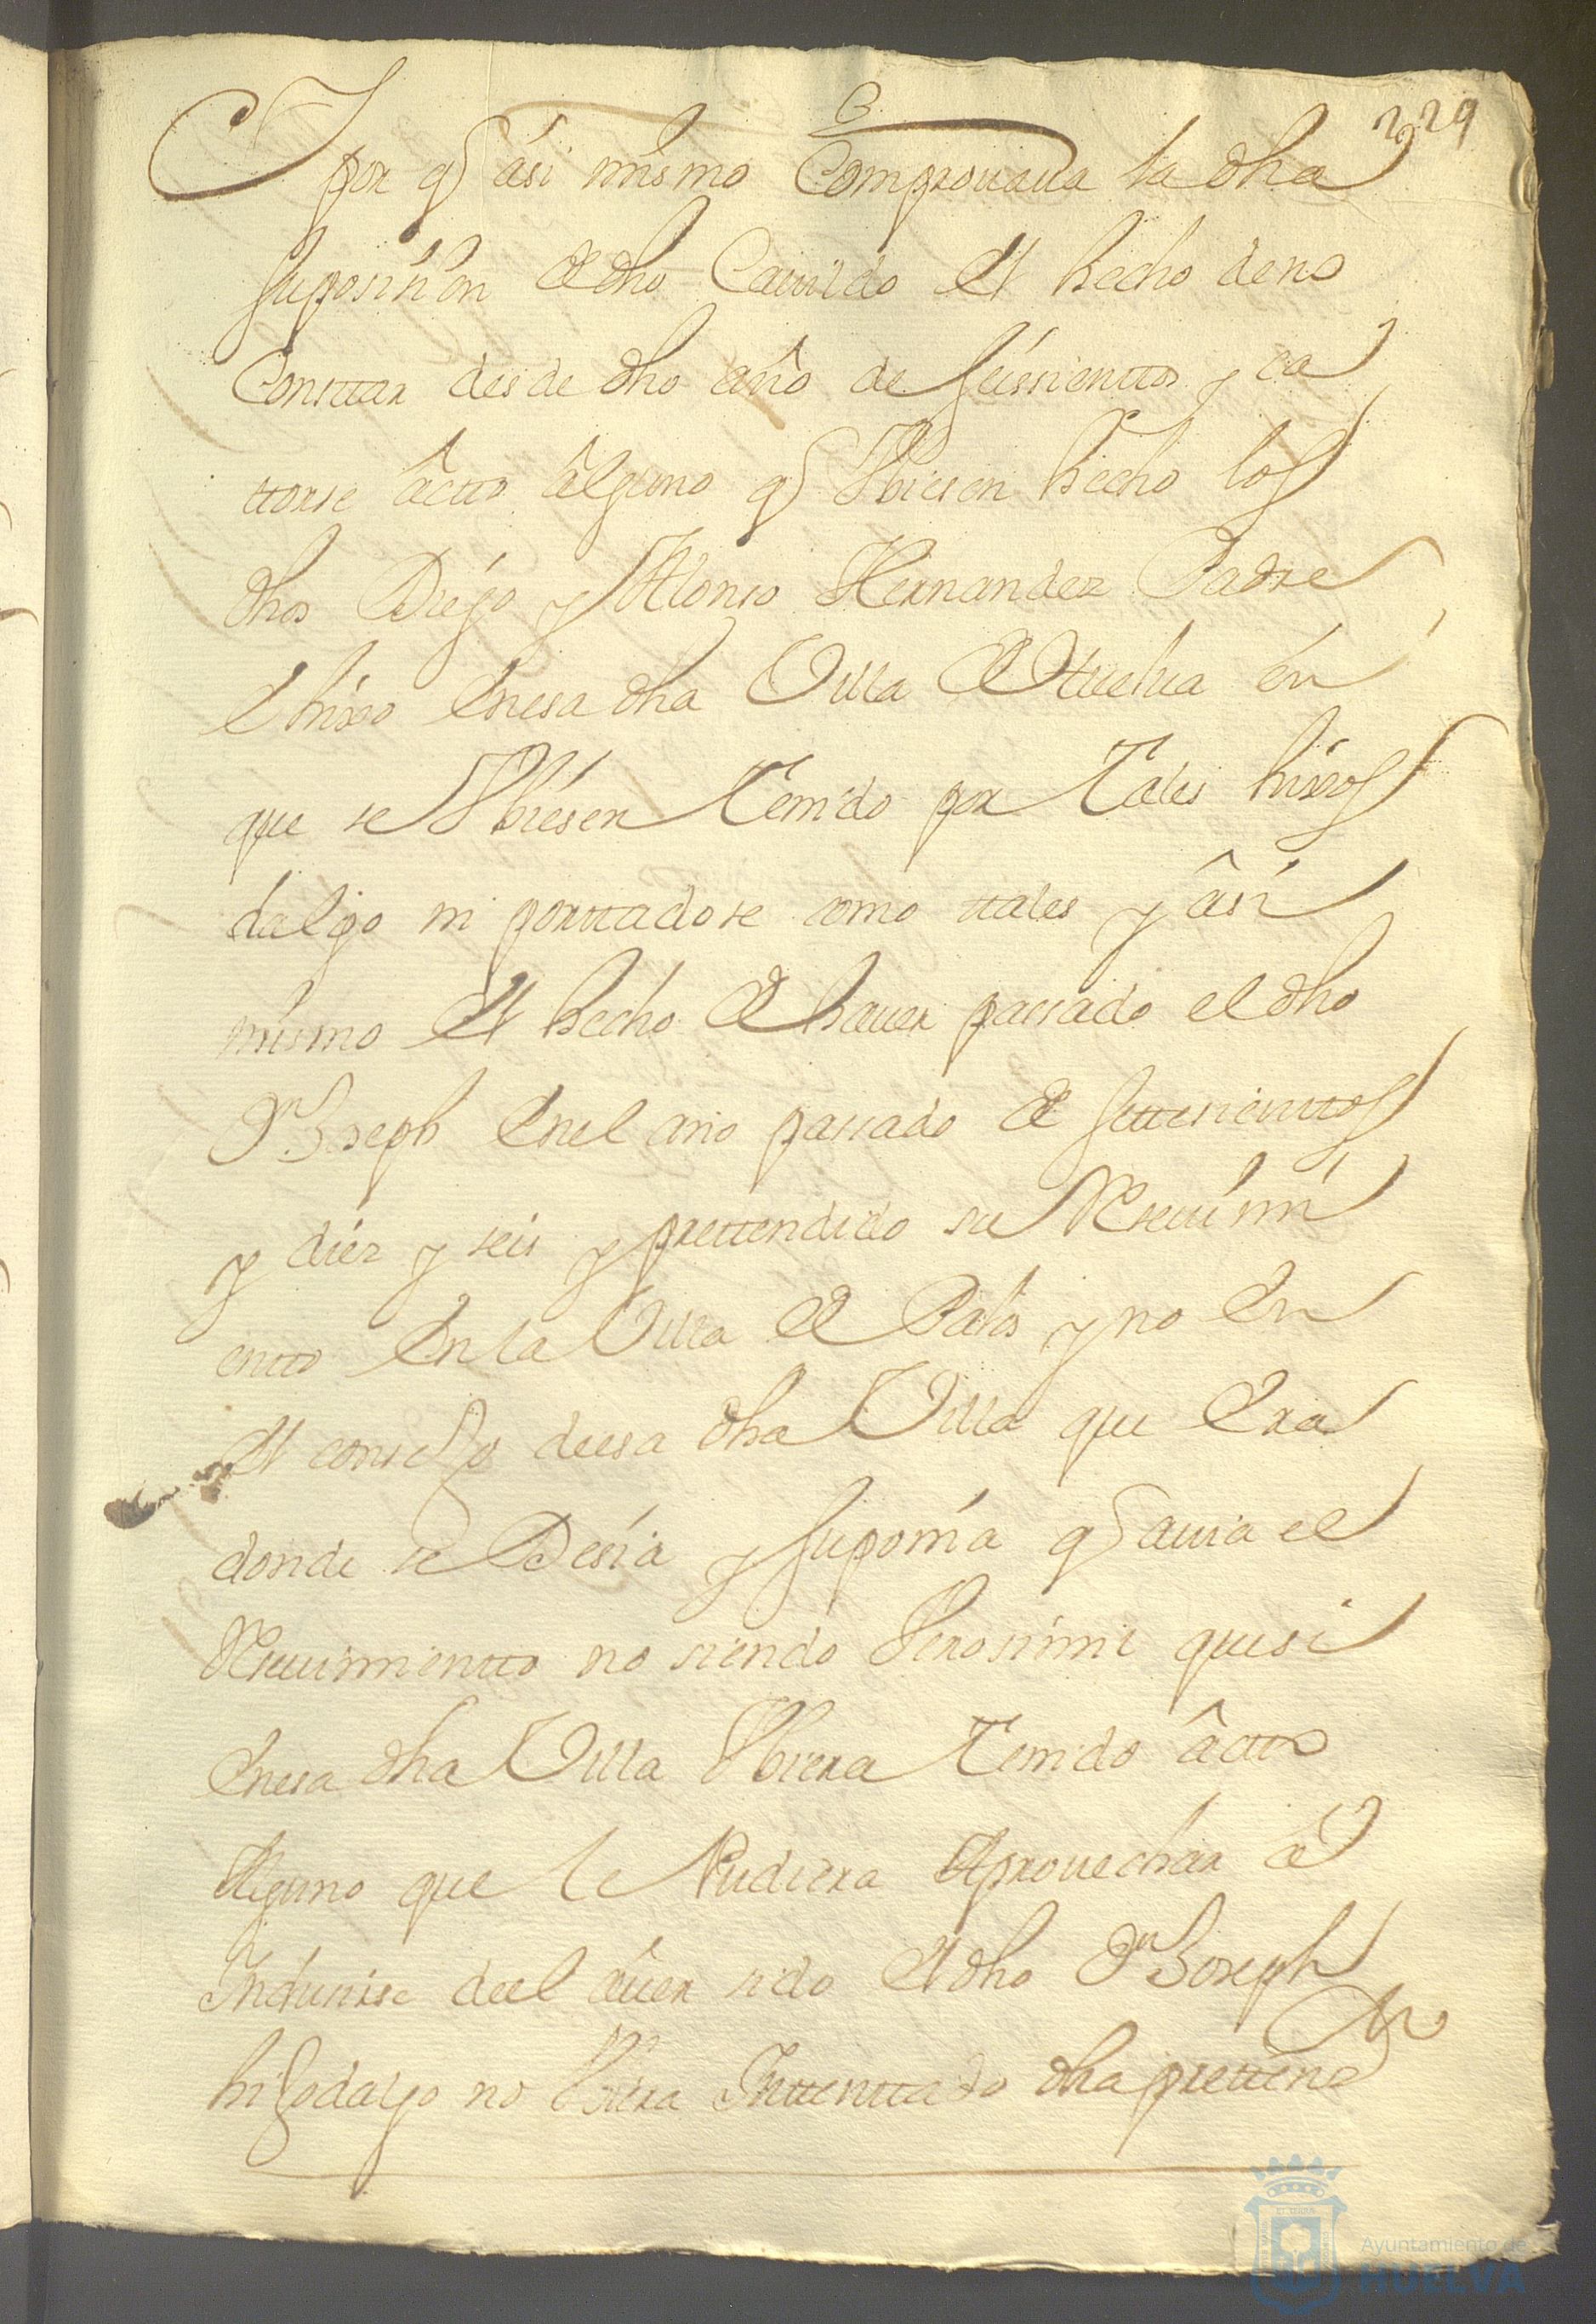 229
Y por q asi mismo Comprovava la dha
suposision de dho Cavildo el hecho de no
Consttar desde dho año de seissienttos y ca
ttorse actto alguno q Vbiesen hecho los
dhos Diego y Alonso Hernandez Padre
e hixo en esa dha Villa de Huelva en
que se Vbiesen Tenido por Tales hixos
dalgo ni porttadose como ttales y asi
mismo el hecho de haver passado el dho
Dn Joseph en el año passado de settesienttos
y diez y seis y prettendido su Resevimi
entto en la Villa de Palos y no en
el consejo de esa dha Villa que Era
donde se Desia y suponia q avia el
Resevimientto no siendo Verosimil que si
en esa dha Villa Vbiera Tenido actto
Alguno que le Pudiera Aprovechar a
Indusirse de el aver sido el dho Dn Joseph
hijodalgo no Vbiera Inttenttado dha pretten
Ayuntamiento de
HUELVA